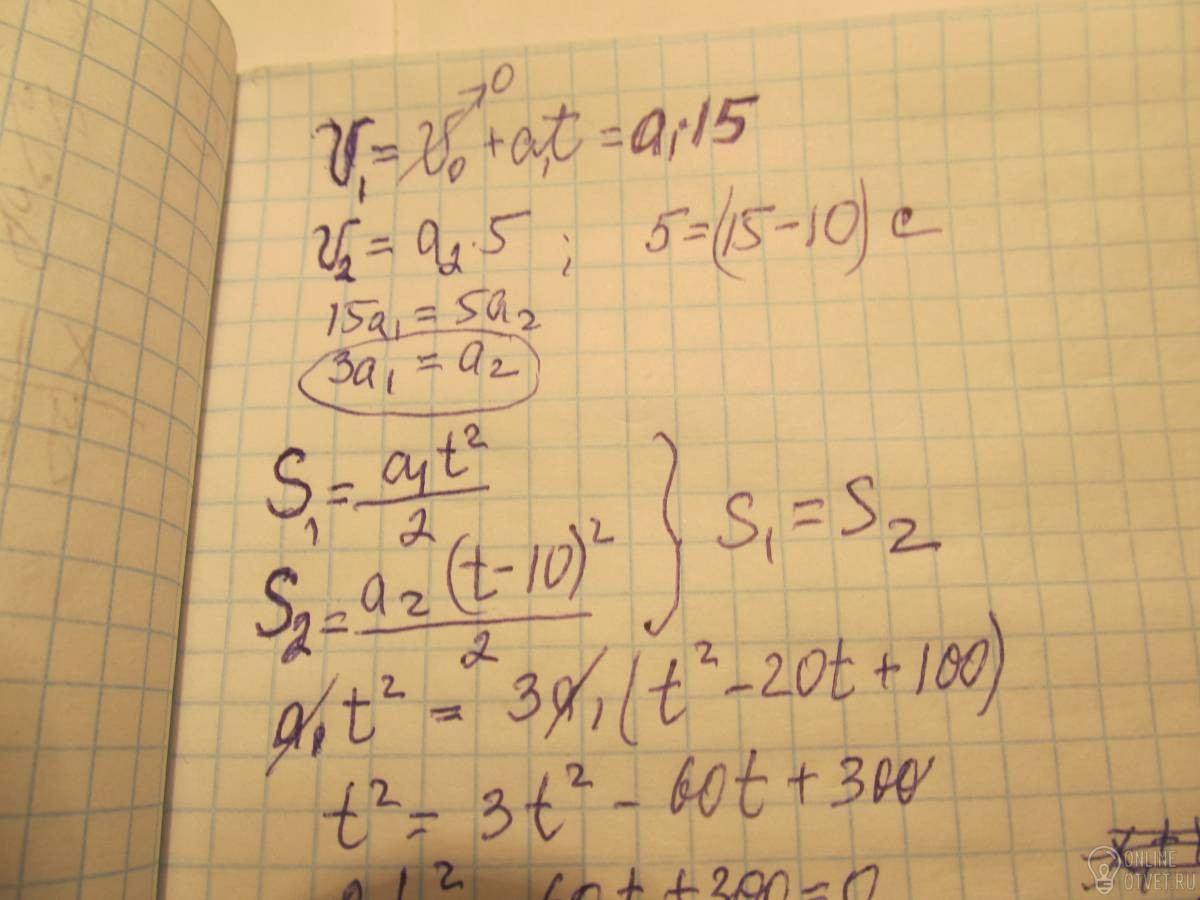 v₁ = v₀ →0 + a₁t = a₁·15
v₂ = a₂·5 ; 5 = (15 − 10) c
15a₁ = 5a₂
3a₁ = a₂
S₁ = a₁t²/2
S₂ = a₂(t − 10)²/2 } S₁ = S₂
a₁t² = 3a₁(t² − 20t + 100)
t² = 3t² − 60t + 300
60t + 300 = 0
ONLINE
OTVET.RU